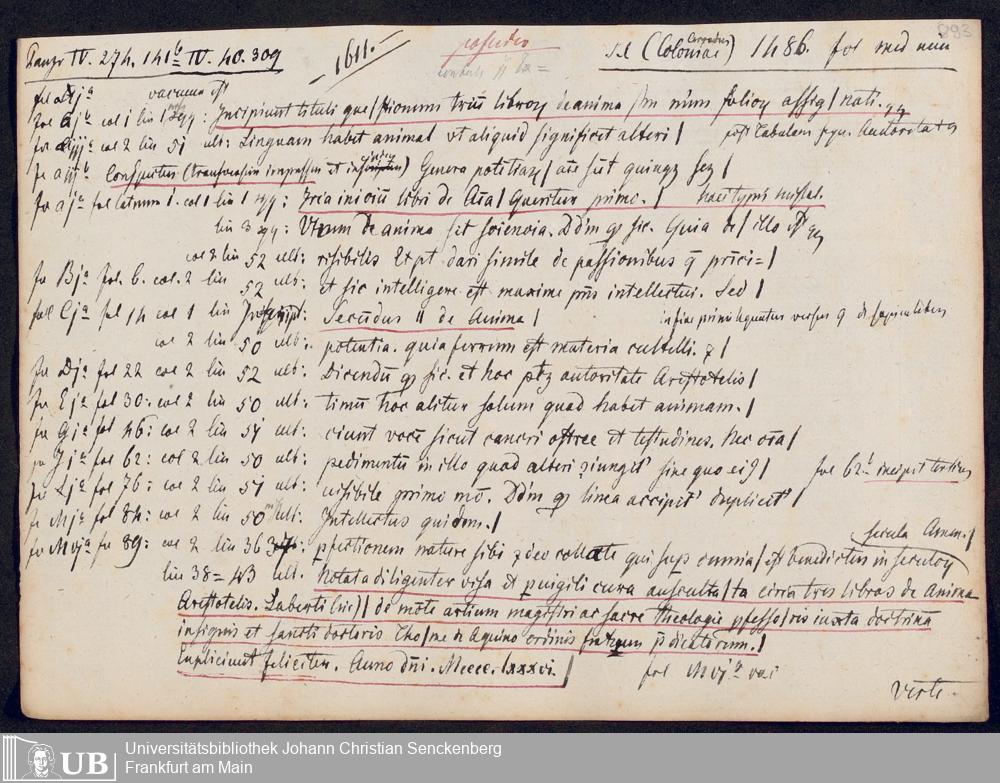 Panzr IV. 274. 141b IV. 40. 309
1611.
possideo
s. l. (Colonia Corradus) 1486. fol med num
893
fol aj a vacuum est
fol aj b col 1 lin 1: Incipiunt tituli que/stionum trium libroꝝ de anima sm nūm folioꝝ assig/nati.
fo aiij a col 2 lin 51 ult: Linguam habet animal vt aliquid significet alteri /
post Tabulam Autoritates
fo aiij b Conspectus (transversim impressus et) Genera potētiaꝝ / aīe sūt quinqꝫ seꝫ /
fo aj a fol latinum 1. col 1 lin 1: Circa iniciū libri de Aīa / Queritur primo. / haec typis missal.
lin 3: Vtrum de anima sit sciencia. Ddm qꝫ sic. Quia de / illo
col 2 lin 52 ult: risibilis Et pt dari simile de passionibus q̄ prīci= /
fo Bj a fol. 6. col. 2 lin 52 ult: et sic intelligere est maxime pūs intellectui. Sed /
fol Cj a fol 14 col 1 lin: Secūdus II de Anima /
in fine primi sequntur versus 9 de sapientibus
col 2 lin 50 ult: potentia. quia ferrum est materia cultelli. ꝛ /
fo Dj a fol 22 col 2 lin 52 ult: Dicendū qꝫ sic. et hoc ptꝫ autoritate Aristotelis /
fo Ej a fol 30: col 2 lin 50 ult: timus hoc alitur solum quod habet animam. /
fo Gj a fol 46: col 2 lin 51 ult: ciunt vocē sicut cancri ostree et testudines. Nec oīa /
fo Jj a fol 62: col 2 lin 50 ult: pedimentū in illo quod alteri ꝯiungit' sine quo ei9 /
fol 62 b incipit tertius
fo Lj a fol 76: col 2 lin 51 ult: uisibile primo mō. Ddm qꝫ linea accipit' dupliciter /
fo Mj a fol 84: col 2 lin 50 ult: Intellectus quidem. /
secula Amen. /
fo Mvj a fo 89: col 2 lin 36: pfectionem nature sibi ꝛ deo collate qui sup omnia / est benedictus in seculoꝝ
lin 38=43 ult. Notata diligenter visa et puigili cura auscultata / ta circa tres libros de Anima
Aristotelis. Laberti / de mōte artium magistri ac sacre theologie pfesso/ris iuxta doctrinā
insignis et sancti doctoris Tho/me de Aquino ordinis fratrum p̄dicatorum. /
Expliciunt feliciter. Anno dni. Mcccc. lxxxvi. /
fol Mvj b vac
verte
Universitätsbibliothek Johann Christian Senckenberg
Frankfurt am Main
UB